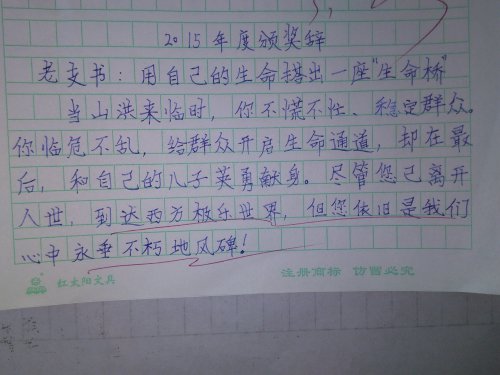 2015年度颁奖辞
老支书：用自己的生命搭出一座"生命桥"
当山洪来临时，你不慌不忙、稳定群众。
你临危不乱，给群众开启生命通道，却在最
后，和自己的儿子英勇献身。尽管您已离开
人世，到达西方极乐世界，但您依旧是我们
心中永垂不朽地风碑！
红太阳文具
注册商标 仿冒必究